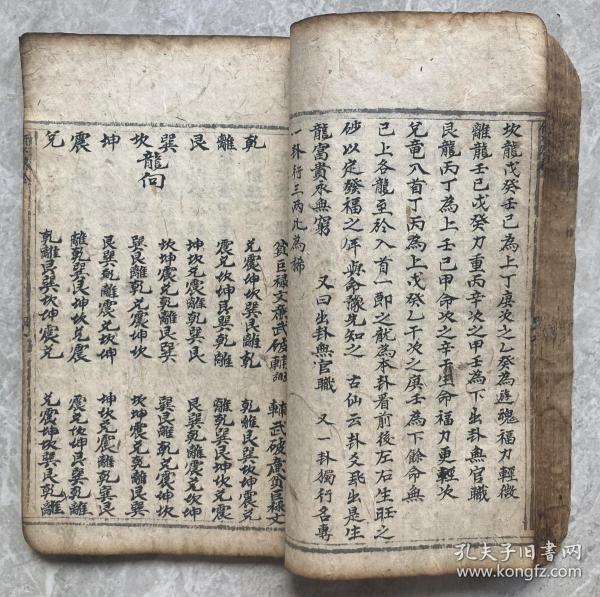 坎龍戊癸壬己為上丁庚次之乙癸為遊魂福力輕微
離龍壬己戊癸力重丙辛次之甲壬為下出卦無官職
艮龍丙丁為上壬己甲命次之辛干生命福力更輕次
兌竜入首丁丙為上戊癸乙干次之庚壬為下餘命無
已上各龍至於入首一即之龍為本卦看前後左右生旺之
砂以定發福之年與命豫先知之 古仙云卦爻죄出是生
龍富貴永無窮 又曰出卦無官職 又一卦獨行名專
一卦行三兩比為稀
貪巨祿文廉武破輔 輔武破廉貪巨祿文
乾 兌震坤坎巽艮離乾 乾離艮巽坎坤震兌
離 震兌坎坤艮巽乾離 離乾巽艮坤坎兌震
艮 坤坎兌震離乾巽艮 艮巽乾離震兌坎坤
巽 坎坤震兌乾離艮巽 巽艮離乾兌震坤坎
龍向
坎 巽艮離乾兌震坤坎 坎坤震兌乾離艮巽
坤 艮巽乾離震兌坎坤 坤坎兌震離乾巽艮
震 離乾巽艮坤坎兌震 震兌坎坤艮巽乾離
兌 乾離艮巽坎坤震兌 兌震坤坎巽艮離乾
孔夫子旧书网
www.kongfz.com